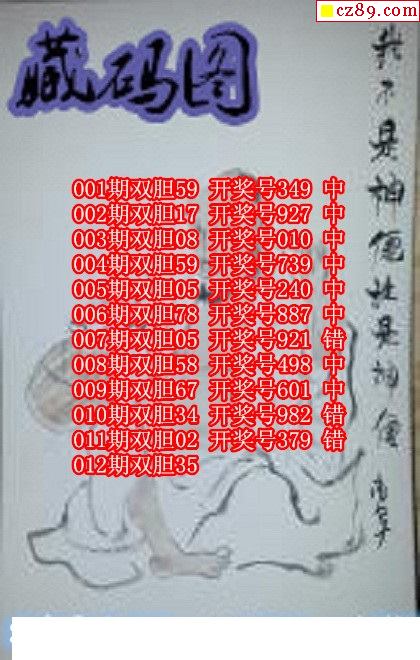 cz89.com
藏码图
001期双胆59 开奖号349 中
002期双胆17 开奖号927 中
003期双胆08 开奖号010 中
004期双胆59 开奖号739 中
005期双胆05 开奖号240 中
006期双胆78 开奖号887 中
007期双胆05 开奖号921 错
008期双胆58 开奖号498 中
009期双胆67 开奖号601 中
010期双胆34 开奖号982 错
011期双胆02 开奖号379 错
012期双胆35
我不是神仙 是神仙